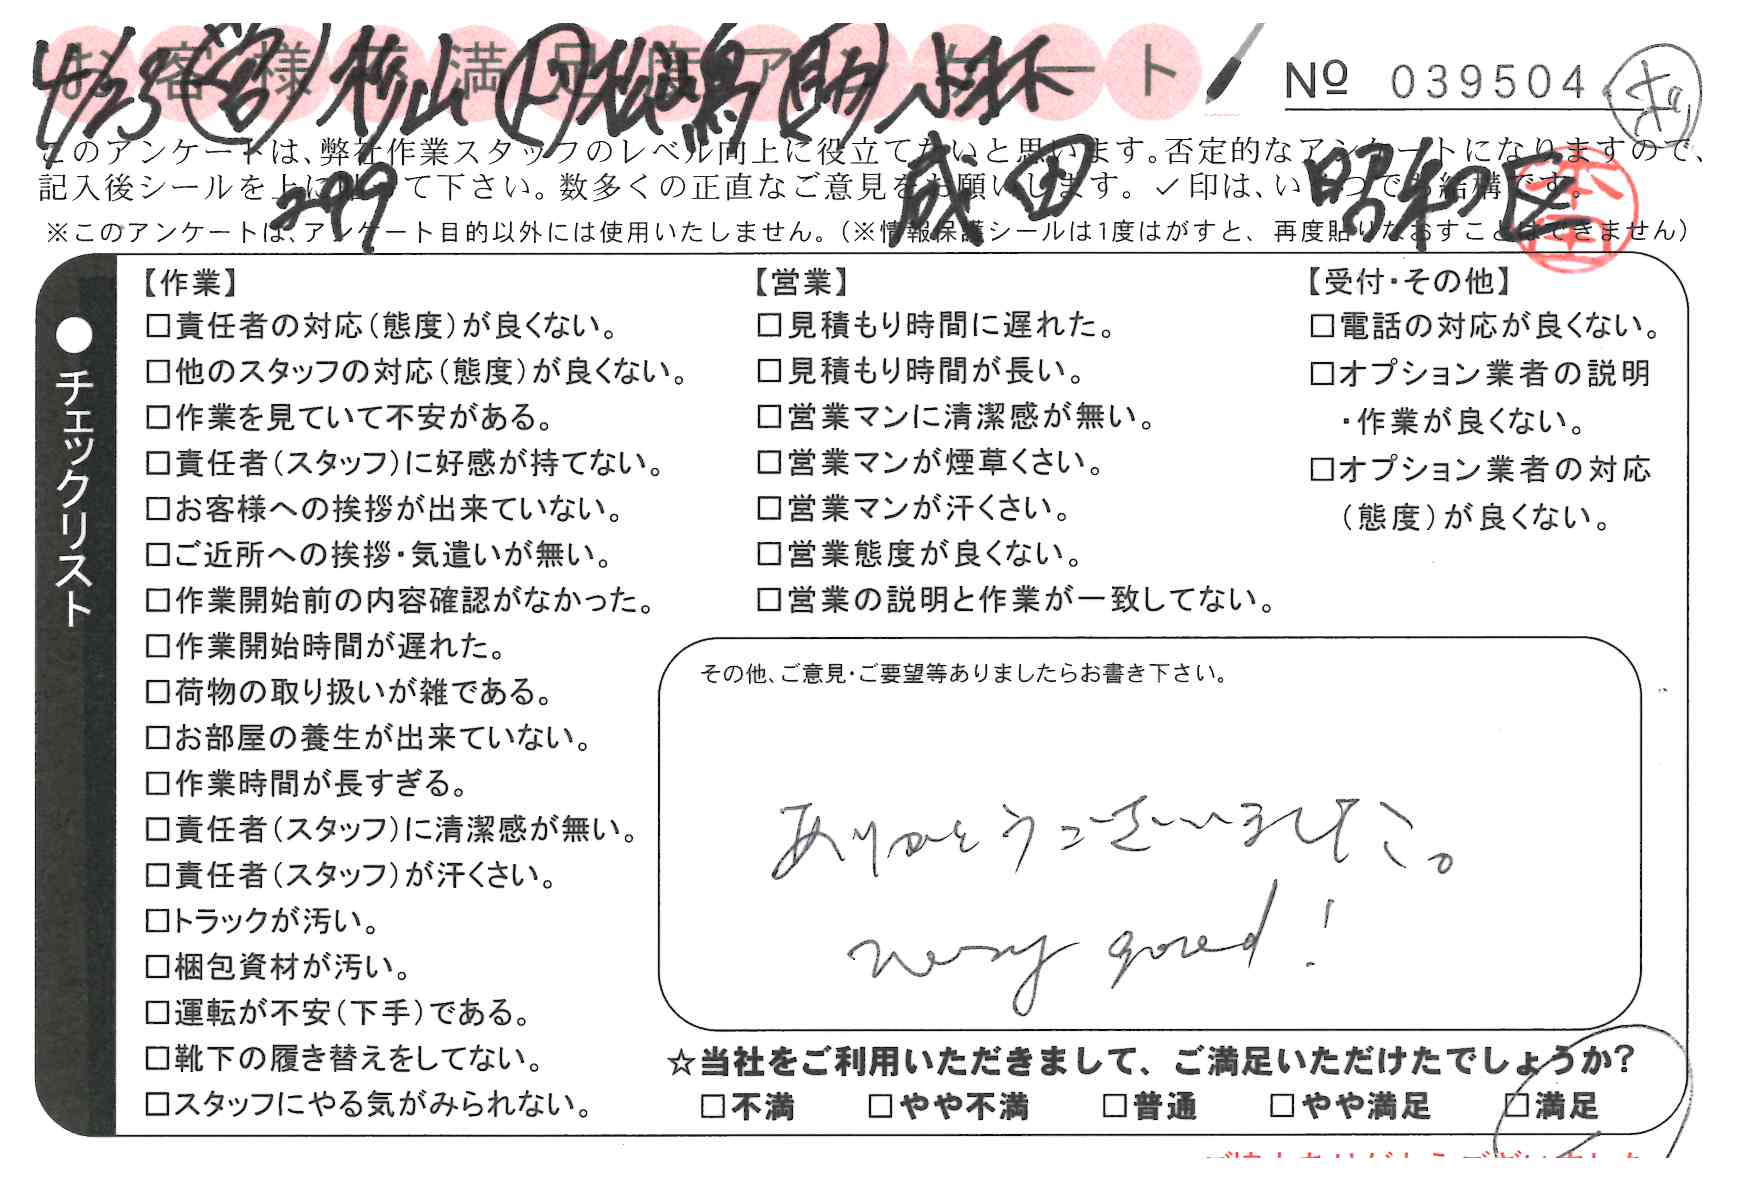 お客様満足度アンケート
№ 039504
4/23 営 杉山 ト 松嶋 助 小林
このアンケートは、弊社作業スタッフのレベル向上に役立てたいと思います。否定的なアンケートになりますので、
記入後シールを上に貼って下さい。数多くの正直なご意見をお願いします。✓印は、いくつでも結構です。
299 成田 昭和区
※このアンケートは、アンケート目的以外には使用いたしません。(※情報保護シールは1度はがすと、再度貼りなおすことはできません)
●チェックリスト
【作業】
□責任者の対応(態度)が良くない。
□他のスタッフの対応(態度)が良くない。
□作業を見ていて不安がある。
□責任者(スタッフ)に好感が持てない。
□お客様への挨拶が出来ていない。
□ご近所への挨拶・気遣いが無い。
□作業開始前の内容確認がなかった。
□作業開始時間が遅れた。
□荷物の取り扱いが雑である。
□お部屋の養生が出来ていない。
□作業時間が長すぎる。
□責任者(スタッフ)に清潔感が無い。
□責任者(スタッフ)が汗くさい。
□トラックが汚い。
□梱包資材が汚い。
□運転が不安(下手)である。
□靴下の履き替えをしてない。
□スタッフにやる気がみられない。
【営業】
□見積もり時間に遅れた。
□見積もり時間が長い。
□営業マンに清潔感が無い。
□営業マンが煙草くさい。
□営業マンが汗くさい。
□営業態度が良くない。
□営業の説明と作業が一致してない。
【受付・その他】
□電話の対応が良くない。
□オプション業者の説明
・作業が良くない。
□オプション業者の対応
(態度)が良くない。
その他、ご意見・ご要望等ありましたらお書き下さい。
ありがとうございました。
very good!
☆当社をご利用いただきまして、ご満足いただけたでしょうか?
□不満 □やや不満 □普通 □やや満足 □満足